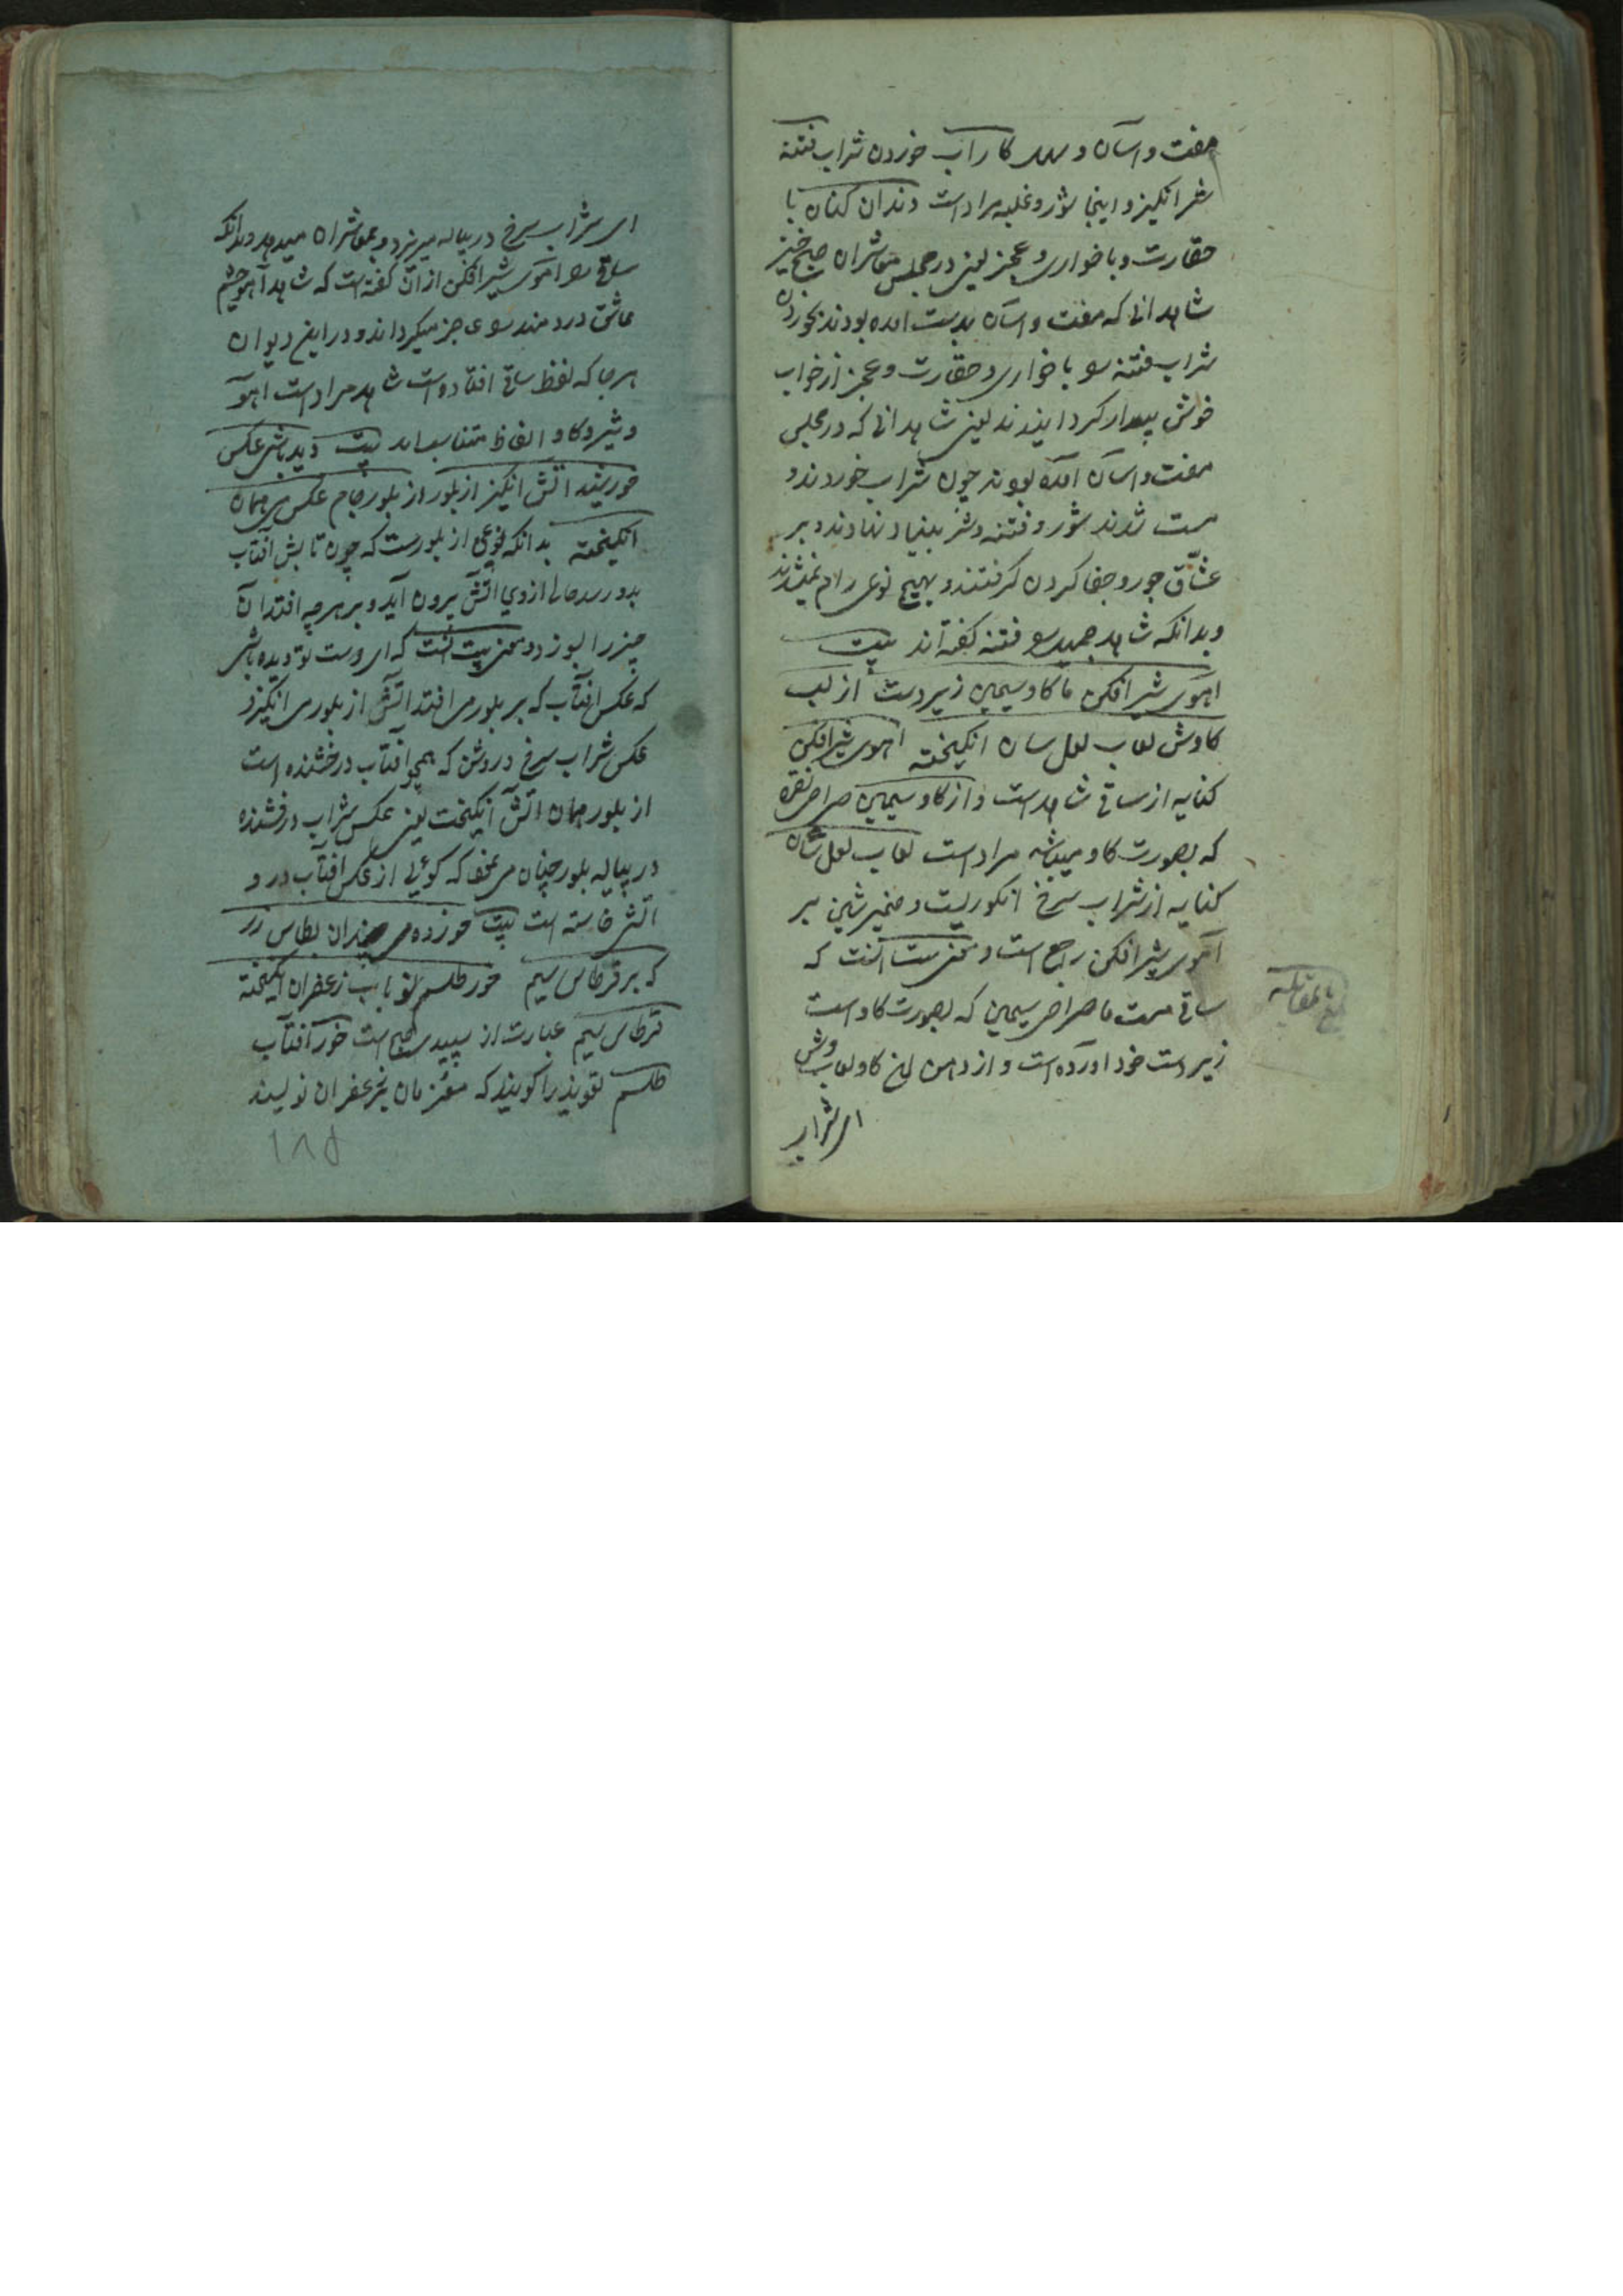 مفت و اسان و کاراب خوردن شراب فتنه
شر انکیز و اینجا شور و غلبه مراد است دندان کنان با
حقارت و با خواری و عجز یعنی در مجلس معاشران صبح خیز
شاهدانی که مفت و اسان بدست امده بودند بخوردن
شراب فتنه را با خواری و حقارت و عجز از خواب
خوش بیدار کردانیدند یعنی شاهدانی که در مجلس
مفت و اسان امده بودند چون شراب خوردند و
مست شدند شور و فتنه و شر بنیاد نهادند و بر
عشاق جور و جفا کردن کرفتند و بهیچ نوعی رام نمیشدند
و بدانکه شاهد را فتنه کفته اند بیت
اهوی شیر افکن ما کاو سیمین زیر دست از لب
کاوش لعاب لعل سان انکیخته اهوی شیر افکن
کنایه از ساقی شاهد است و از کاو سیمین صراحی نقره
که بصورت کاو میباشد مراد است لعاب لعل سان
کنایه از شراب سرخ انکوریست و ضمیر شین بر
آهوی شیر افکن راجع است و معنی بیت آنست که
ساقی مست ما صراحی سیمین که بصورت کاو است
زیر دست خود اورده است و از دهن این کاو لعاب وش
ای شراب
بلغ مقابله
ای شراب سرخ در پیاله میریزد و بمعاشران میدهد و بدانکه
ساقی را آهوی شیر افکن از آن کفته است که شاهد آهو چشم
عاشق دردمند را عاجز میکرداند و در این دیوان
هر جا که لفظ ساقی افتاده است شاهد مراد است اهو
و شیر و کاو الفاظ متناسب اند بیت دیده باشی عکس
خورشید اتش انکیز از بلور از بلور جام عکس می همان
انکیخته بدانکه نوعی از بلورست که چون تابش افتاب
بدو رسد حالی از وی اتش بیرون آید و بر هر چه افتد آن
چیز را بسوزد و معنی بیت انست که ای دوست تو دیده باشی
که عکس افتاب که بر بلور می افتد اتش از بلور می انکیزد
عکس شراب سرخ و روشن که همچو افتاب درخشنده است
از بلور همان اتش انکیخت یعنی عکس شراب درفشنده
در پیاله بلور چنان می نماید که کوئی از عکس افتاب در و
اتش خاسته است بیت خورده می چندان بطاس زر
که بر قرطاس سیم خور طلسم نو باب زعفران انکیخته
قرطاس سیم عبارت از سپیدی صبح است خور آفتاب
طلسم تعویذ را کویند که معزمان بزعفران نویسند
۱۸۵